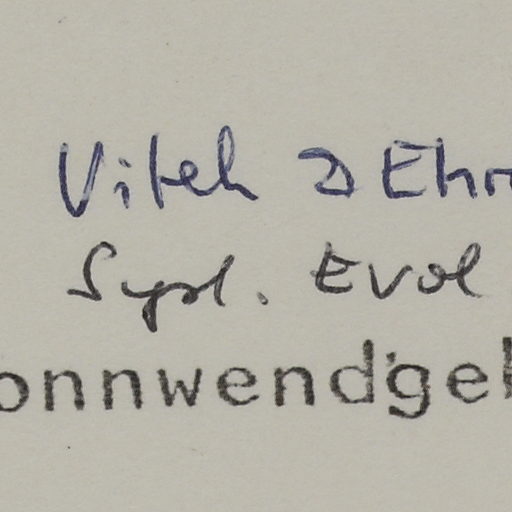 Vitek & Ehr
Syst. Evol
onnwendgeb